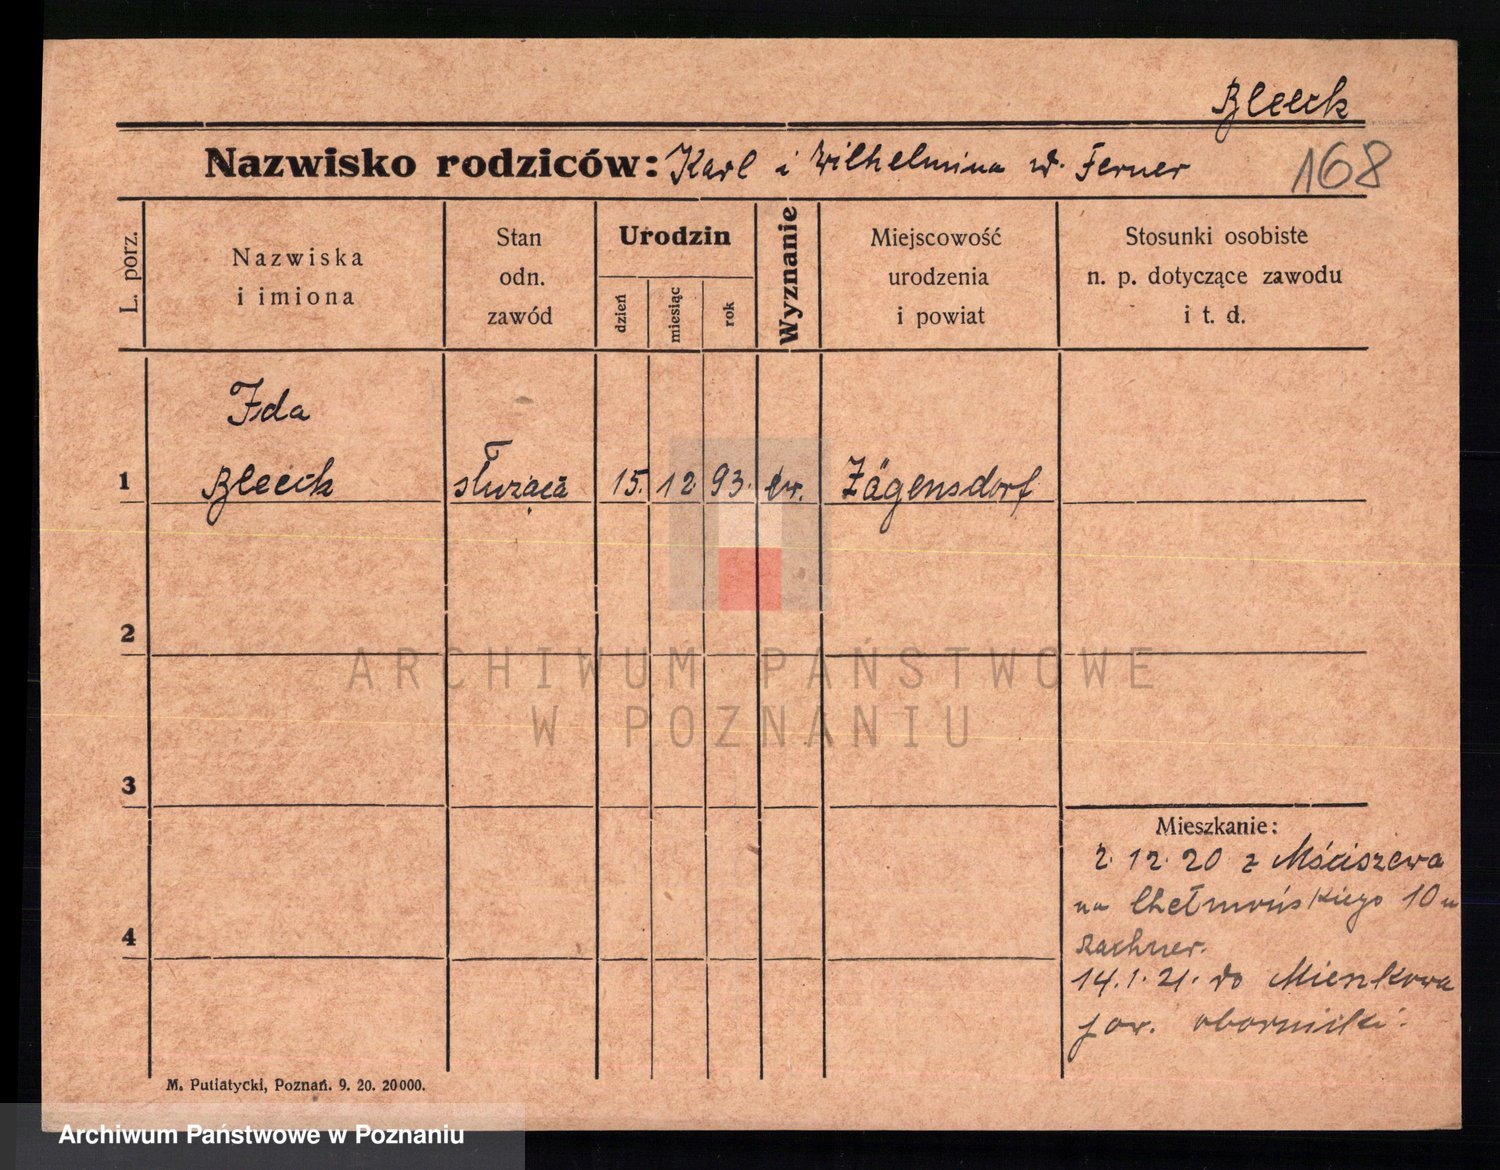 Bleeck
Nazwisko rodziców: Karl i Wilhelmina d. Ferner
168
L. porz.
Nazwiska
i imiona
Stan
odn.
zawód
Urodzin
dzień
miesiąc
rok
Wyznanie
Miejscowość
urodzenia
i powiat
Stosunki osobiste
n. p. dotyczące zawodu
i t. d.
Ida
1 Bleeck służąca 15. 12. 93. ew. Zägensdorf
2
3
4
Mieszkanie:
2. 12. 20 z Mściszewa
na Chełmońskiego 10 u
Rachner.
14. 1. 21. do
pow. oborniki.
M. Putiatycki, Poznań. 9. 20. 20000.
ARCHIWUM PAŃSTWOWE
W POZNANIU
Archiwum Państwowe w Poznaniu